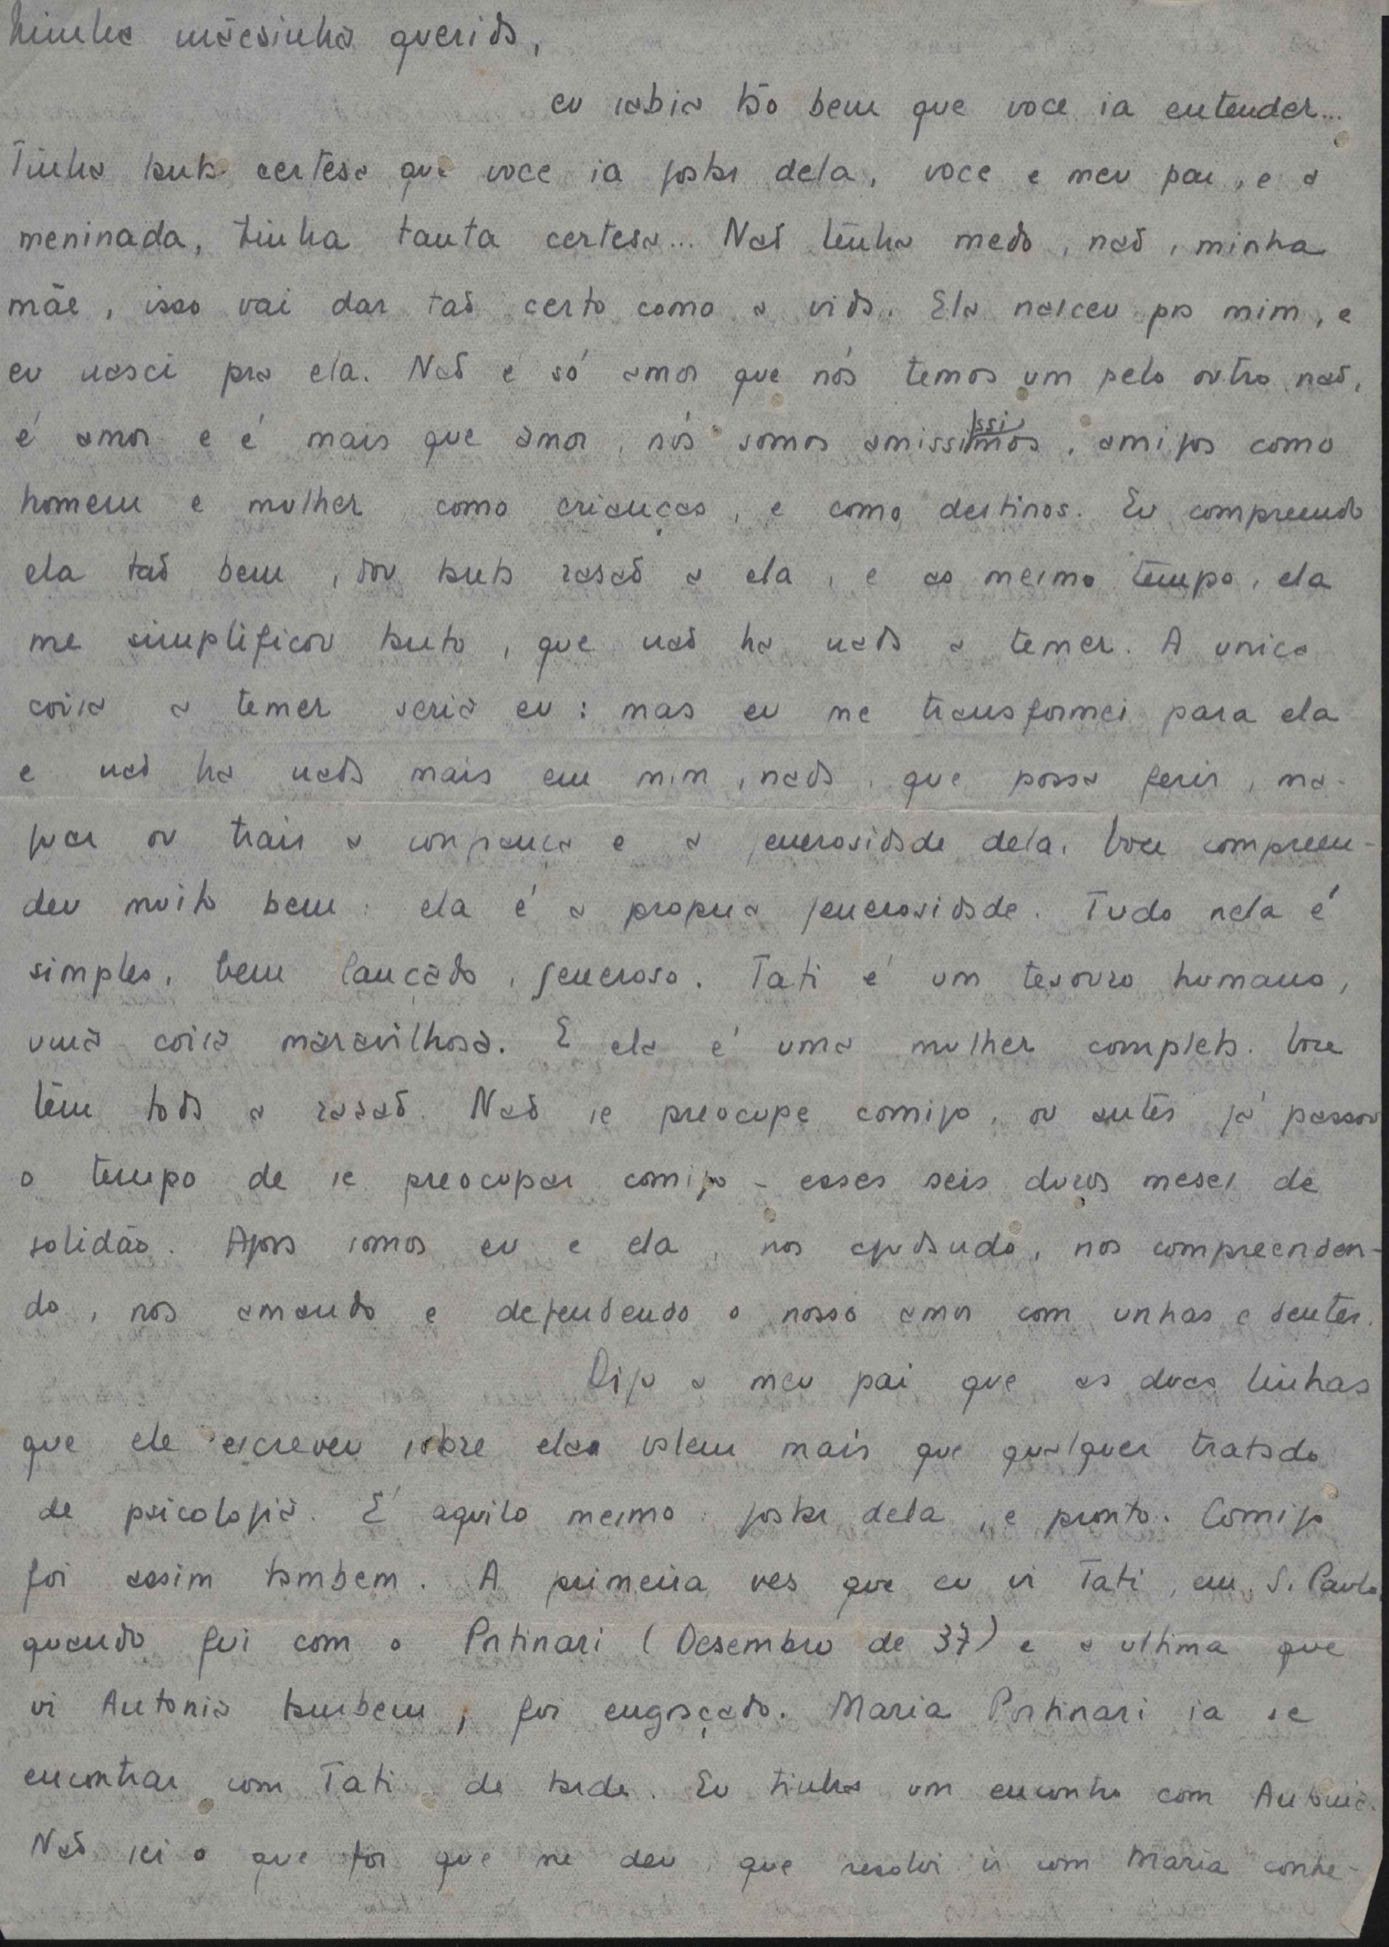 Minha mãesinha querida,
eu sabia tão bem que voce ia entender...
Tinha tanta certesa que voce ia gostar dela, voce e meu pai, e a
meninada, tinha tanta certesa... Naõ tenha medo, naõ, minha
mãe, isso vai dar taõ certo como a vida. Ela nasceu pra mim, e
eu nasci pra ela. Naõ é só amor que nós temos um pelo outro naõ,
é amor e é mais que amor, nós somos amississimos, amigos como
homem e mulher como crianças, e como destinos. Eu compreendo
ela taõ bem, dou tanta rasaõ a ela, e ao mesmo tempo, ela
me simplificou tanto, que naõ ha nada a temer. A unica
coisa a temer seria eu: mas eu me transformei para ela
e naõ ha nada mais em mim, nada, que possa ferir, ma-
goar ou trair a confiança e a generosidade dela. Voce compreen-
deu muito bem: ela é a propria generosidade. Tudo nela é
simples, bem lançado, generoso. Tati é um tesouro humano,
uma coisa maravilhosa. E ela é uma mulher completa. Voce
têm toda a rasaõ. Naõ se preocupe comigo, ou antes já passou
o tempo de se preocupar comigo - esses seis duros meses de
solidão. Agora somos eu e ela, nos ajudando, nos compreenden-
do, nos amando e defendendo o nosso amor com unhas e dentes.
Diga a meu pai que as duas linhas
que ele escreveu sobre elas valem mais que qualquer tratado
de psicologia. É aquilo mesmo: gostar dela, e pronto. Comigo
foi assim tambem. A primeira ves que eu vi Tati, em S. Paulo
quando fui com o Portinari (Desembro de 37) e a ultima que
vi Antonia tambem, foi engraçado. Maria Portinari ia se
encontrar com Tati de tarde. Eu tinha um encontro com Antonia.
Naõ sei o que foi que me deu que resolvi ir com Maria conhe-